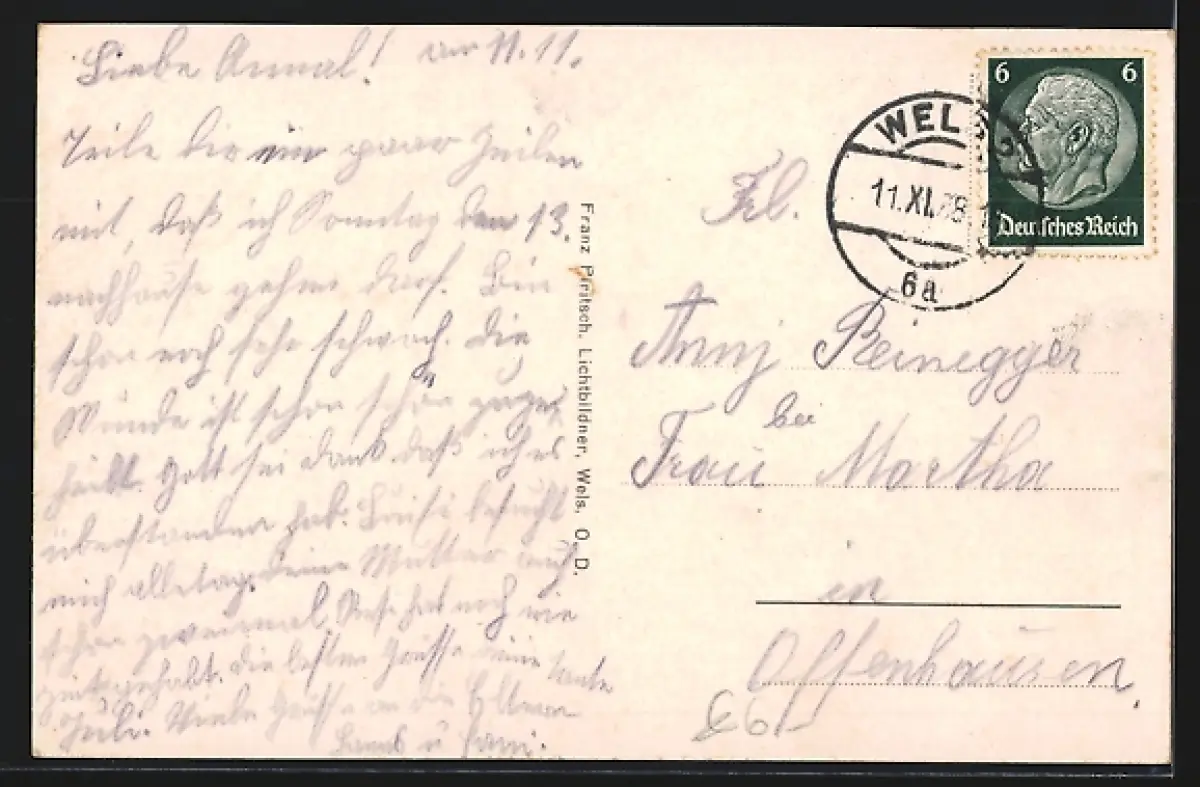 Liebe Annal! am 11.11.
Teile dir ein paar Zeilen
mit, daß ich Sonntag den 13.
nachhause gehen darf. Bin
schon noch sehr schwach. Die
Wunde ist schon schön zuge
heilt. Gott sei dank daß ich es
überstanden hab. Luise besucht
mich alletag. Deine Mutter auch
schon zweimal. hat noch nie
Zeit gehabt. Die besten Grüsse deine tante
Juli. Viele Grüsse an die Eltern
u
Franz Piritsch, Lichtbildner, Wels, O. D.
6 6
Deutsches Reich
WELS
11.XI.38
6a
Frl.
Anny Reinegger
bei
Frau Martha
in
Offenhausen,